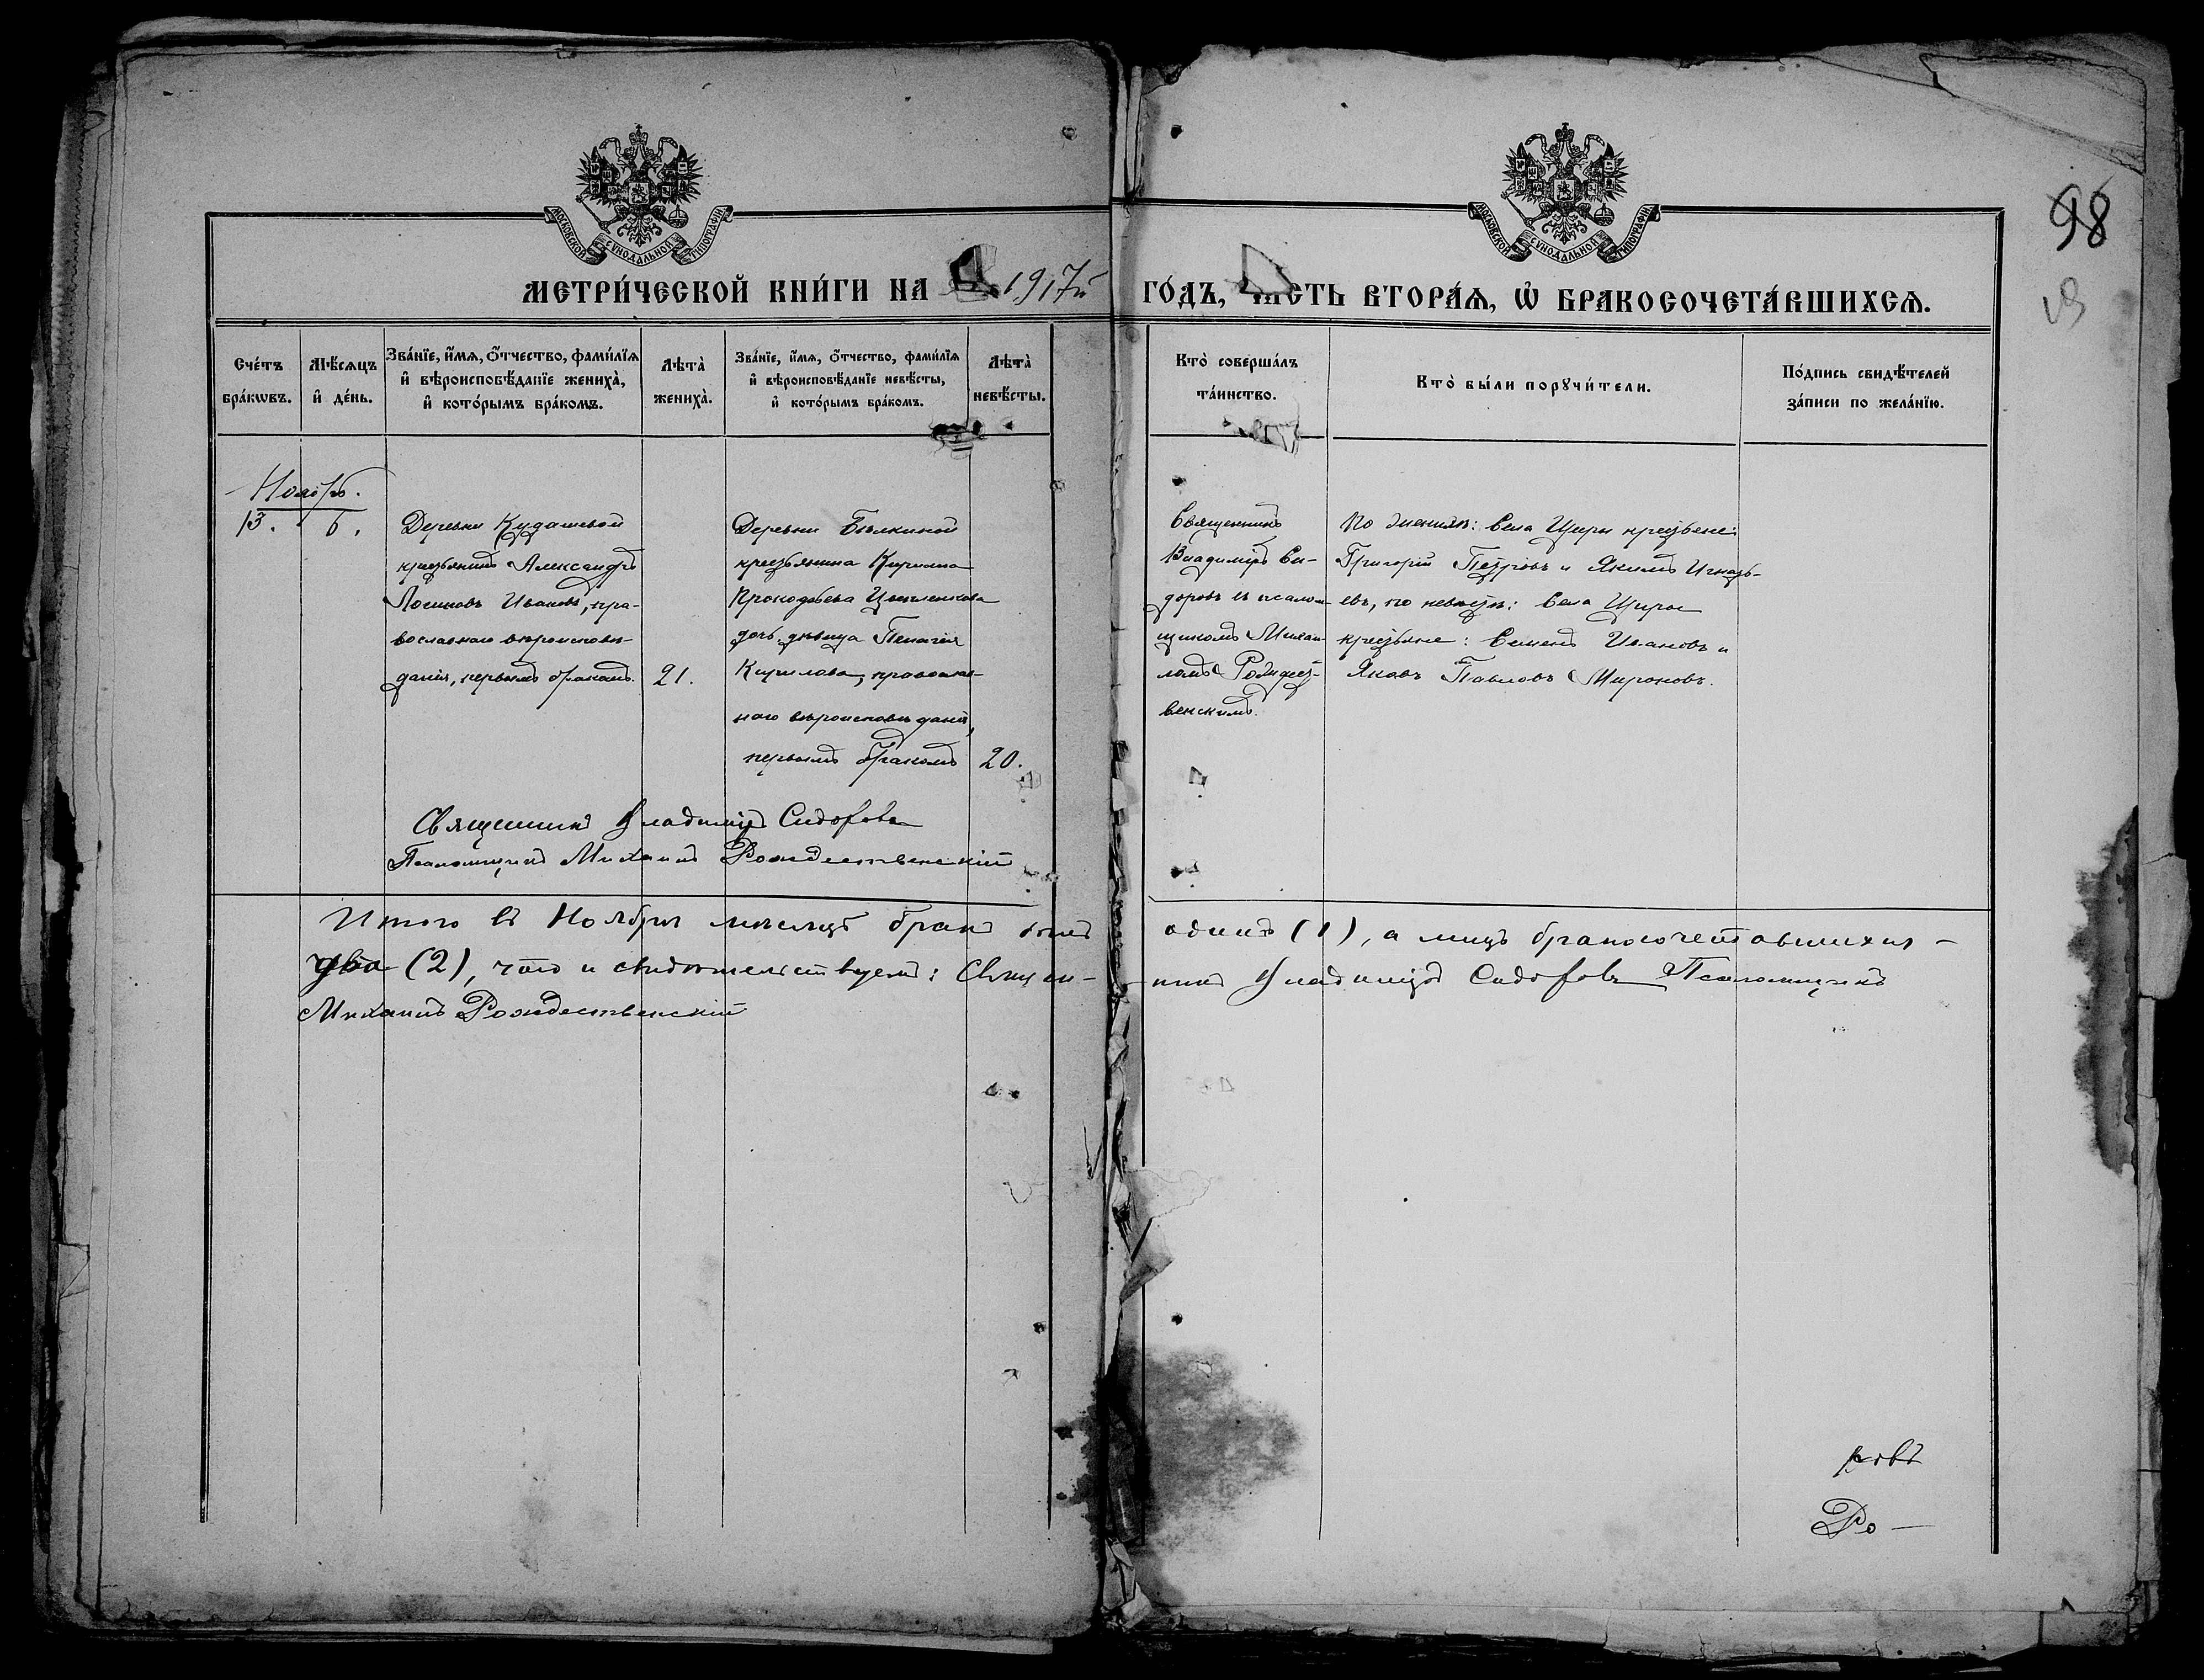 МОСКОВСКОЙ СѴНОДАЛЬНОЙ ТИПОГРАФІИ
МОСКОВСКОЙ СѴНОДАЛЬНОЙ ТИПОГРАФІИ
98
МЕТРИ́ЧЕСКОЙ КНИ́ГИ НА 1917й ГО́ДЪ, ЧАСТЬ ВТОРА́Ѧ, Ѽ БРАКОСОЧЕТА́ВШИХСѦ.
Сче́тъ
бра́кѡвъ.
Мѣ́сѧцъ
и҆ де́нь.
Зва́нїе, и҆́мѧ, ѻ҆́тчество, фами́лїѧ
и҆ вѣроисповѣ́данїе жениха̀,
и҆ кото́рымъ бра́комъ.
Лѣта̀
жениха̀.
Зва́нїе, и҆́мѧ, ѻ҆́тчество, фами́лїѧ
и҆ вѣроисповѣ́данїе невѣ́сты,
и҆ кото́рымъ бра́комъ.
Лѣта̀
невѣ́сты.
Кто̀ соверша́лъ
та́инство.
Кто̀ бы́ли порꙋчи́тели.
По́дпись свидѣ́телей
за́писи по жела́нїю.
Ноябрь.
13. 6.
Деревни Кудашевой
крестьянинъ Александръ
Логиновъ Ивановъ, пра-
вославнаго вѣроисповѣ-
данія, первымъ бракомъ.
21.
Деревни Бѣлкиной
крестьянина Кирилла
дочь, дѣвица Пелагія
Кириллова, православ-
наго вѣроисповѣданія,
первымъ бракомъ
20.
Священникъ
Владиміръ Си-
доровъ съ псалом-
щикомъ Михаи-
ломъ Рождест-
венскимъ.
По женихѣ: Села Щиры крестьяне:
Григорій Петровъ и Якимъ Игнать-
евъ, по невѣстѣ: Села Щиры
крестьяне: Семенъ Ивановъ и
Яковъ Павловъ Мироновъ.
Священникъ Владиміръ Сидоровъ
Псаломщикъ Михаилъ Рождественскій
Итого въ Ноябрѣ мѣсяцѣ бракъ былъ одинъ (1), а лицъ бракосочетавшихся -
два (2), что и свидѣтельствуемъ: Священ-никъ Владиміръ Сидоровъ Псаломщикъ
Михаилъ Рождественскій
ровъ
Ро-